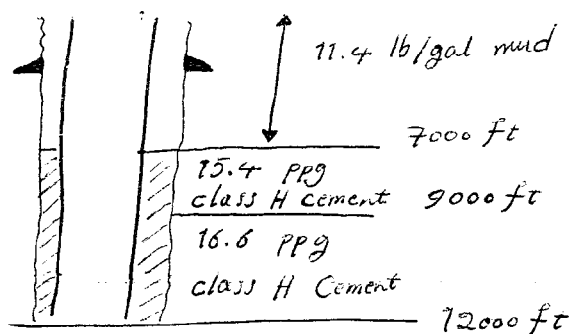 11.4 lb/gal mud
7000 ft
15.4 ppg
class H cement
9000 ft
16.6 ppg
class H Cement
12000 ft